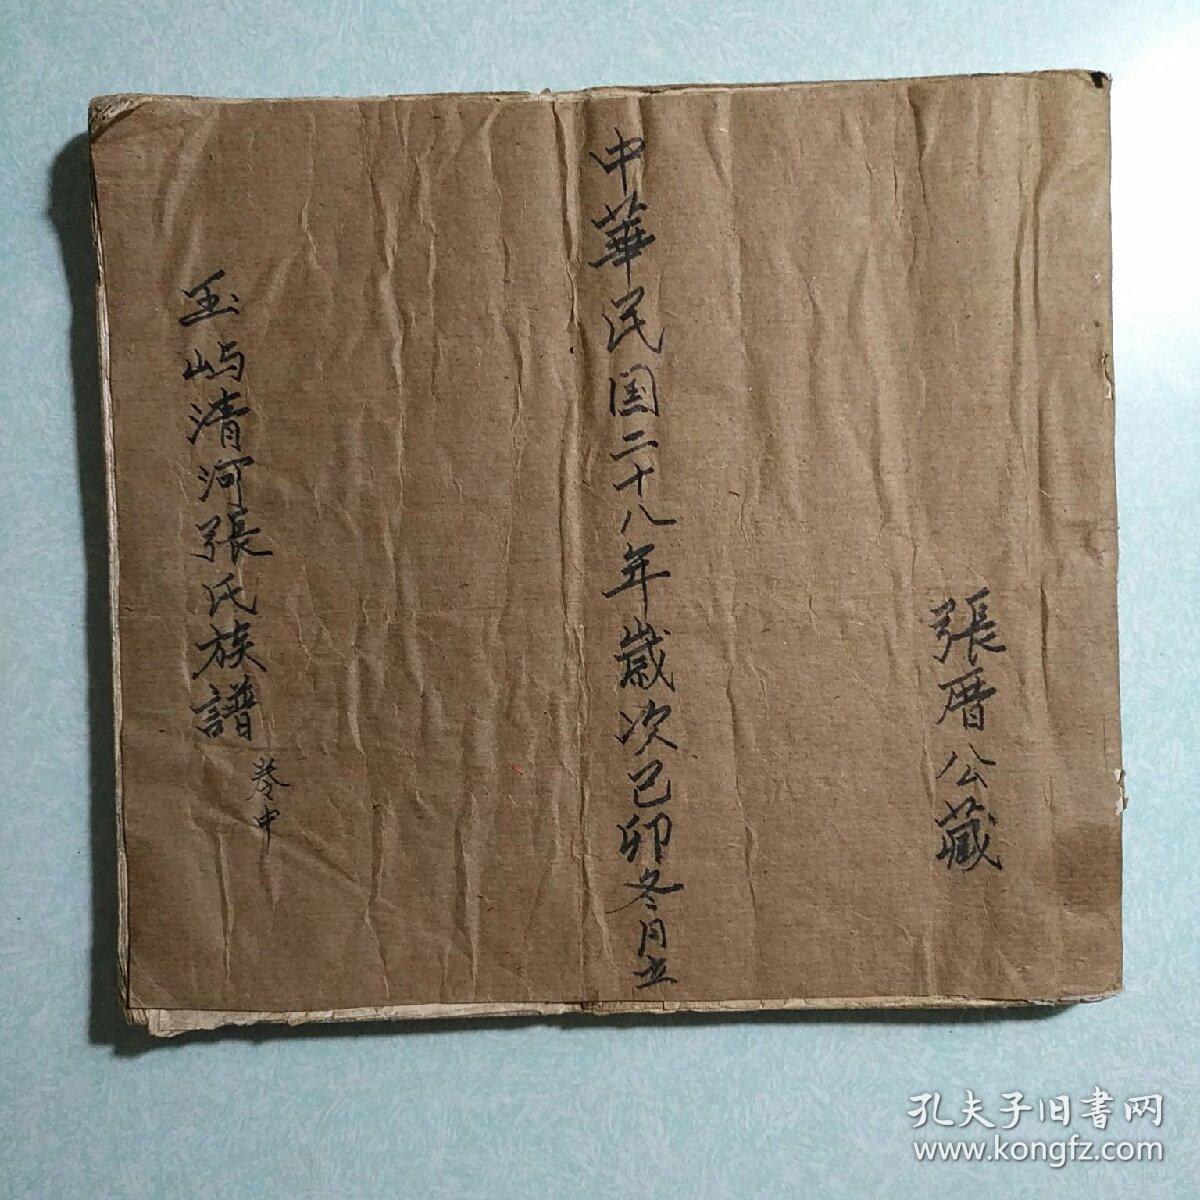 張厝公藏
中華民国二十八年歲次己卯冬月立
玉屿清河張氏族譜
卷中
孔夫子旧書网
www.kongfz.com